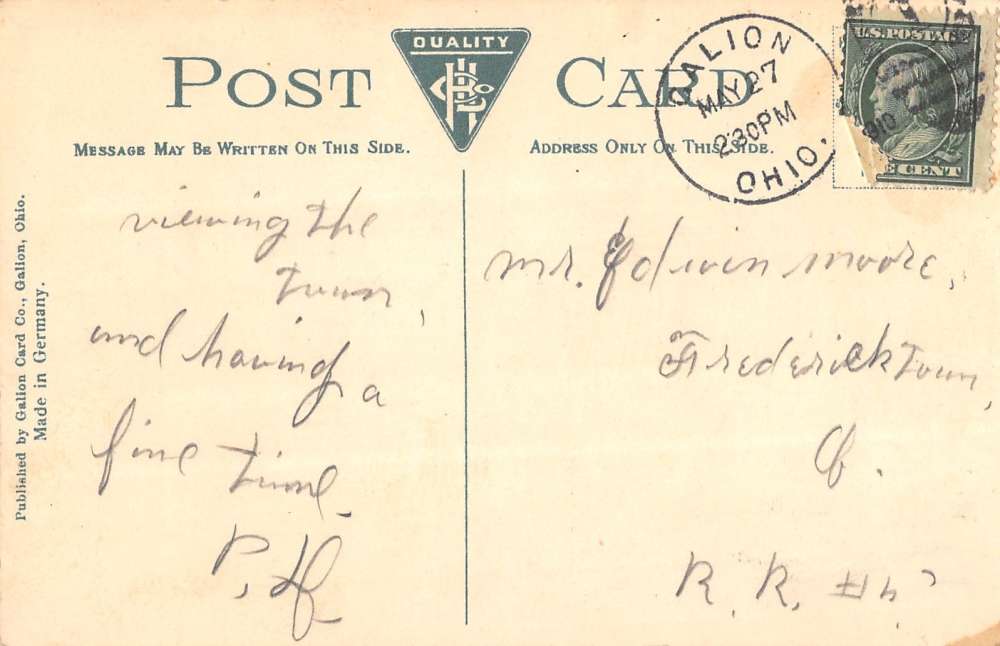 POST CARD
QUALITY
MESSAGE MAY BE WRITTEN ON THIS SIDE.
ADDRESS ONLY ON THIS SIDE.
GALION
MAY 27
2:30PM
OHIO.
U.S. POSTAGE
1910
CENT
Published by Galion Card Co., Galion, Ohio.
Made in Germany.
viewing the
town,
and having a
fine time.
P. H.
Mr. Edwin Moore,
Fredericktown,
O.
R. R. #5